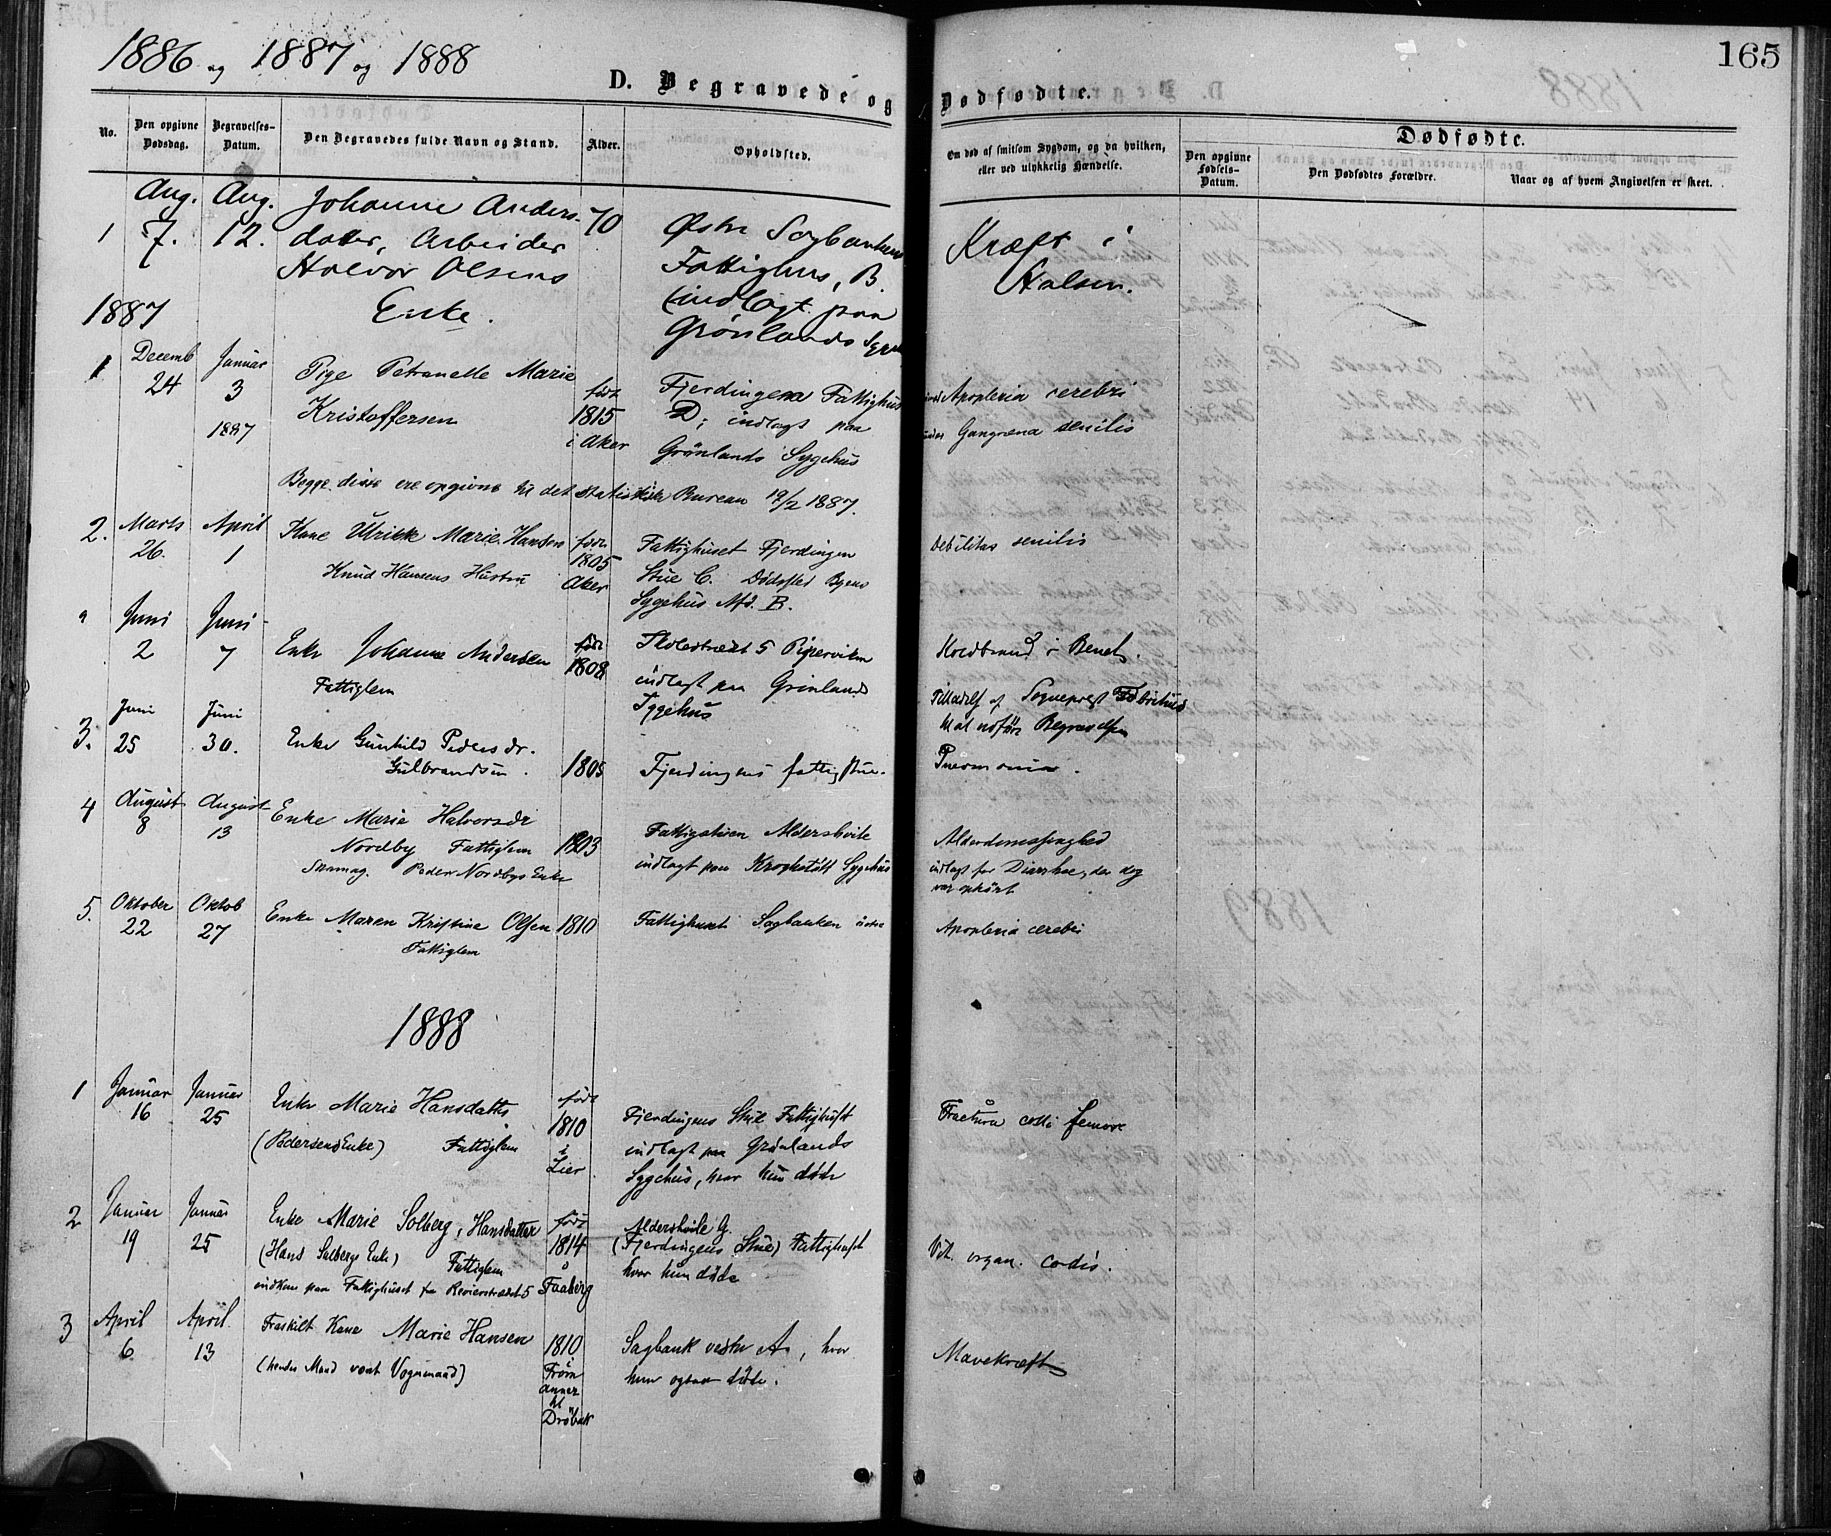 1886 og 1887 og 1888
165
D. Begravede og Dødfødte.
No.
Den opgivne Dødsdag.
Begravelses-Datum.
Den Begravedes fulde Navn og Stand.
Alder.
Opholdsted.
Om død af smitsom Sygdom, og da hvilken, eller ved ulykkelig Hændelse.
Dødfødte.
Den opgivne Fødsels-Datum.
Den Dødfødtes Forældre.
Naar og af hvem Angivelsen er skeet.
Aug. Aug. Johanne Anders- 70 Østre Sagbankens
1 7. 12. datter, Arbeider Fattighus, B. Kræft i
Halvor Olsens (indlagt paa Halsen.
Enke. Grønlands Syge
1887
1 Decemb 24 Januar 3 1887
Pige Petronelle Marie
Kristoffersen
født 1815 i Aker
Fjerdingens Fattighus
D; indlagt paa
Grønlands Sygehus
Apoplexia cerebri
Gangræna senilis
Begge disse ere opgivne til det statistiske Bureau 19/2 1887.
2. Marts 26. April 1
Kone Ulrikke Marie Hansen
Knud Hansens Hustru
født 1805 Aker
Fattighuset Fjerdingen
Stue C. Dødsfled Byens
Sygehus Afd. B.
Debilitas senilis
Juni 2 Juni 7
Enke Johanne Andersen
Fattiglem
født 1808
Skolestrædet 5 Piperviken
indlagt paa Grønlands
Sygehus
Koldbrand i Benet.
Tilladelse af Sogneprest
til at udføre Begravelsen
3. Juni 25 Juni 30.
Enke Gunhild Pedersdr.
Gulbrandsen.
1805
Fjerdingens fattigstue.
Pneumonia.
4 August 8 August 13
Enke Marie Halvorsdr
Nordby Fattiglem
Skomag. Peder Nordbys Enke
1803
Fattigstuen Aldershvile
indlagt paa Krohgstøtt. Sygehus
Alderdomssvaghed
indlagt for Diarrhoe, der dog
var ophørt
5. Oktober 22 Oktob 27
Enke Maren Kristine Olsen
Fattiglem
1810
Fattighuset Sagbanken østre
Apoplexia cerebri
1888
1 Januar 16 Januar 25
Enke Marie Hansdatter
(Pedersens Enke) Fattiglem
født 1810 i Lier
Fjerdingens Stue Fattighuset
indlagt paa Grønlands
Sygehus, hvor hun døde
Fractura colli femoris
2 Januar 19 Januar 25
Enke Marie Solberg, Hansdatter
(Hans Solbergs Enke) Fattiglem
indkom paa Fattighuset fra Revierstrædet 5
født 1814 Faaberg
Aldershvile G.
(Fjerdingens Stue) Fattighuset
hvor hun døde
Vit. organ. cordis.
3 April 6 April 13
Fraskilt Kone Marie Hansen
(hendes Mand var Vognmand)
1810
Drøbak
Sagbank vestre A, hvor
hun ogsaa døde.
Mavekræft